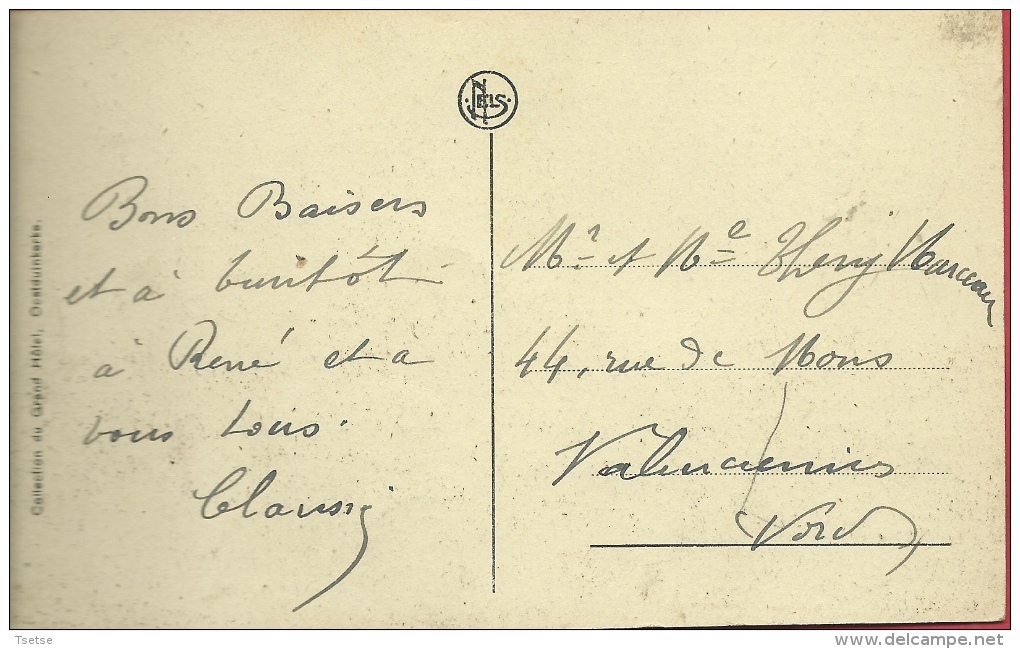 NELS
Bons Baisers
et à bientôt
à René et à
vous tous.
Collection du Grand Hôtel, Oostduinkerke.
Mr et Me Théry Marceau
44, rue de Mons
Valenciennes
Nord
Tsetse
www.delcampe.net